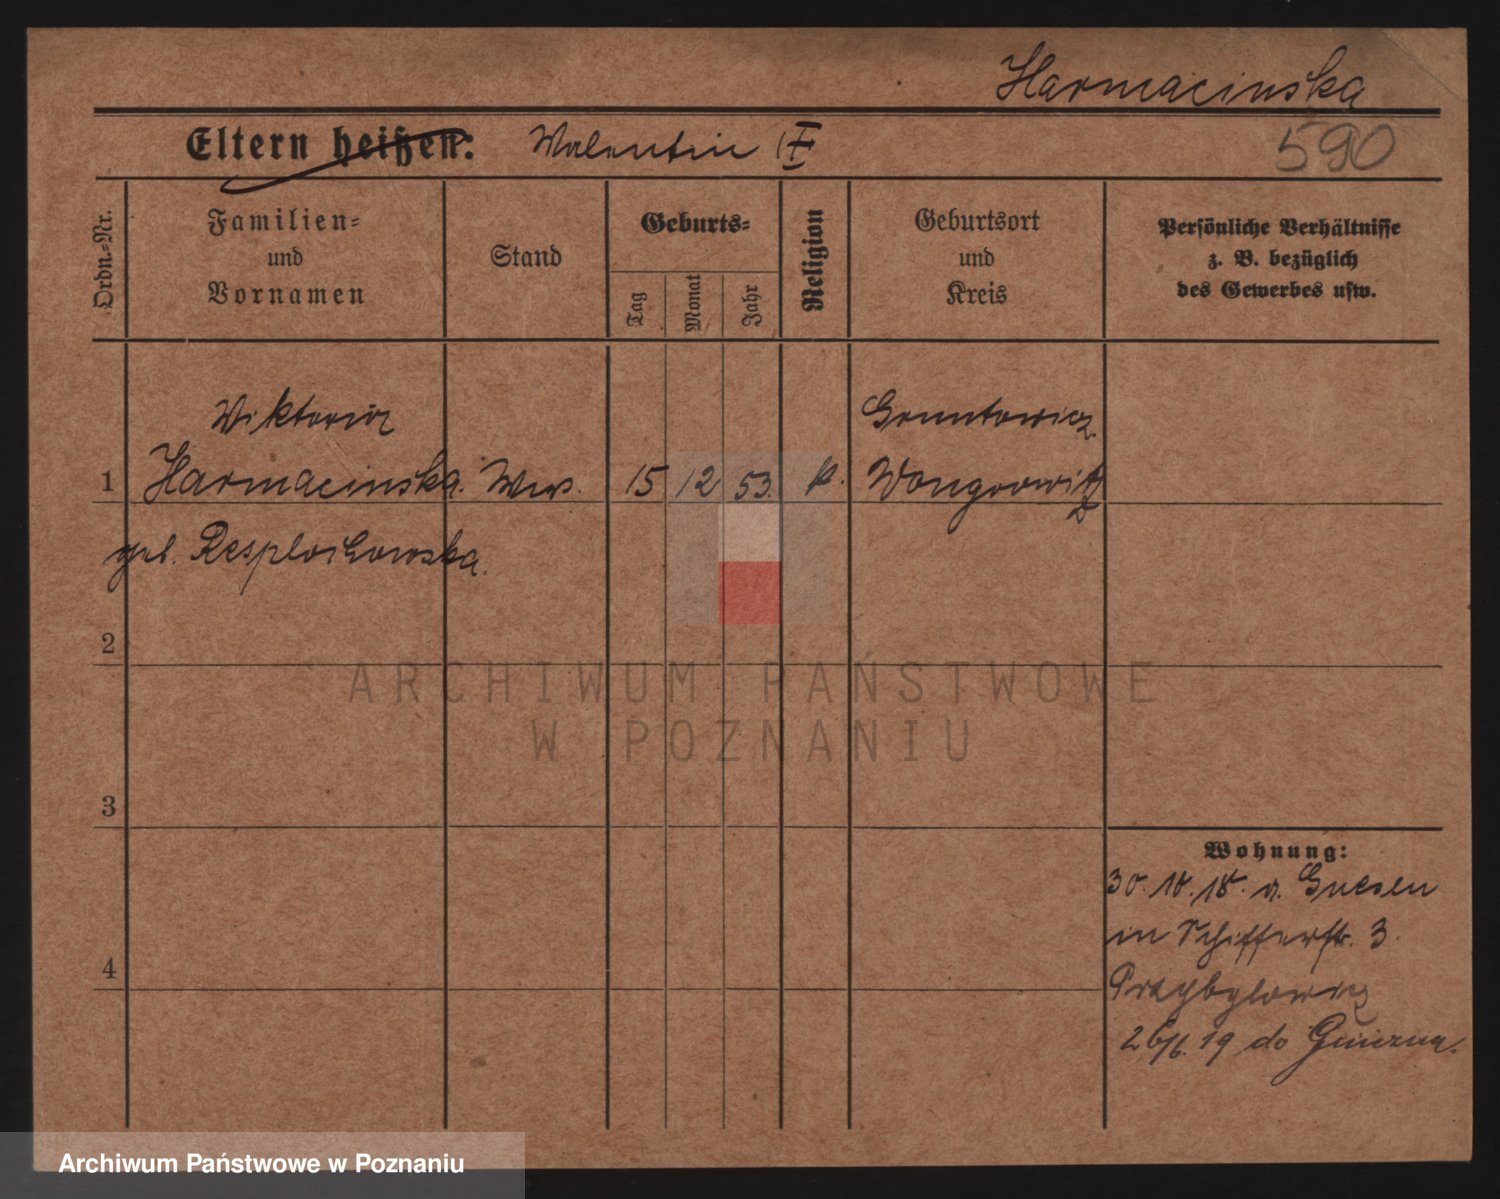 Harmacinska
Eltern heißen: Walentin
590
Ordn.-Nr.
Familien-
und
Vornamen
Stand
Geburts-
Tag
Monat
Jahr
Religion
Geburtsort
und
Kreis
Persönliche Verhältnisse
z. B. bezüglich
des Gewerbes usw.
Wiktoria
1 Harmacinska. Wws. 15 12 53. k. Wongrowitz
geb.
2
3
4
Wohnung:
30. 10. 18. a. Gnesen
in Schifferstr. 3
Przybylowicz
26/6. 19 do Gniezna.
ARCHIWUM PAŃSTWOWE
W POZNANIU
Archiwum Państwowe w Poznaniu